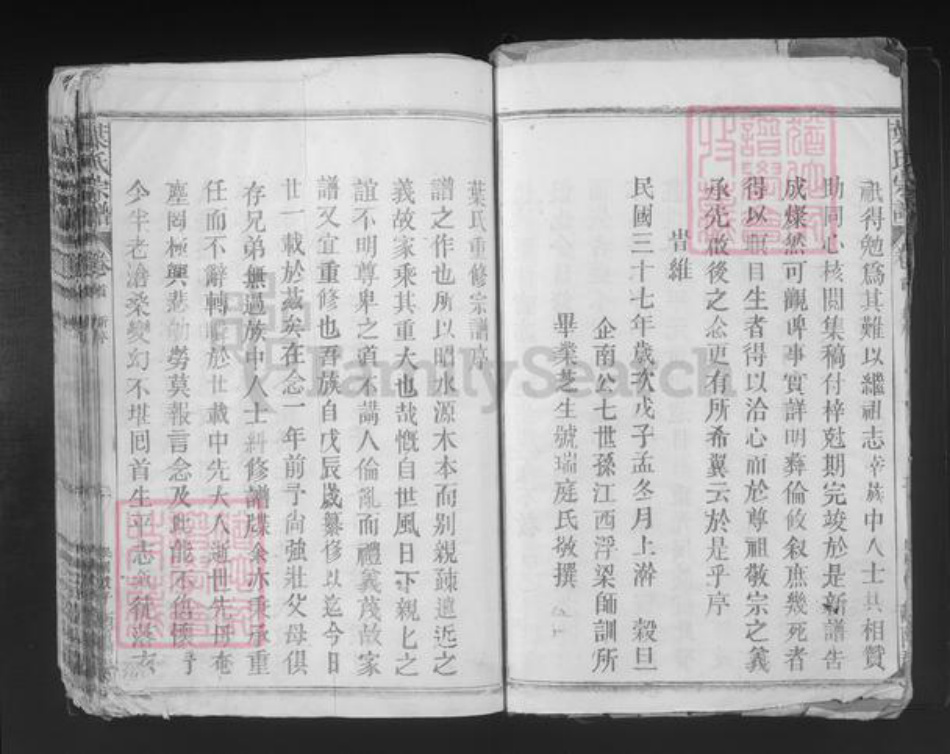 祇得勉為其難以繼祖志幸族中人士共相贊
助同心核閱集稿付梓尅期完竣於是新譜告
成燦然可觀俾事實詳明彝倫攸叙庶幾死者
得以瞑目生者得以洽心而於尊祖敬宗之義
承先啟後之念更有所希翼云於是乎序
旹維
民國三十七年歲次戊子孟冬月上澣 穀旦
企南公七世孫江西浮梁師訓所
畢業芝生號瑞庭氏敬撰
葉氏重修宗譜序
譜之作也所以昭水源木本而别親疎遠近之
義故家乘其重大也哉慨自世風日下親匕之
誼不明尊卑之道不講人倫亂而禮義蔑故家
譜又宜重修也吾族自戊辰歲纂修以迄今日
廿一載於茲矣在念一年前予尚強壯父母俱
存兄弟無過族中人士糾修譜牒余亦秉承重
任而不辭轉瞬於廿載中先大人逝世先母奄
塵罔極興悲劬勞莫報言念及此能不愴懷乎
今半老滄桑變幻不堪回首生平志氣
葉氏宗譜
卷
FamilySearch